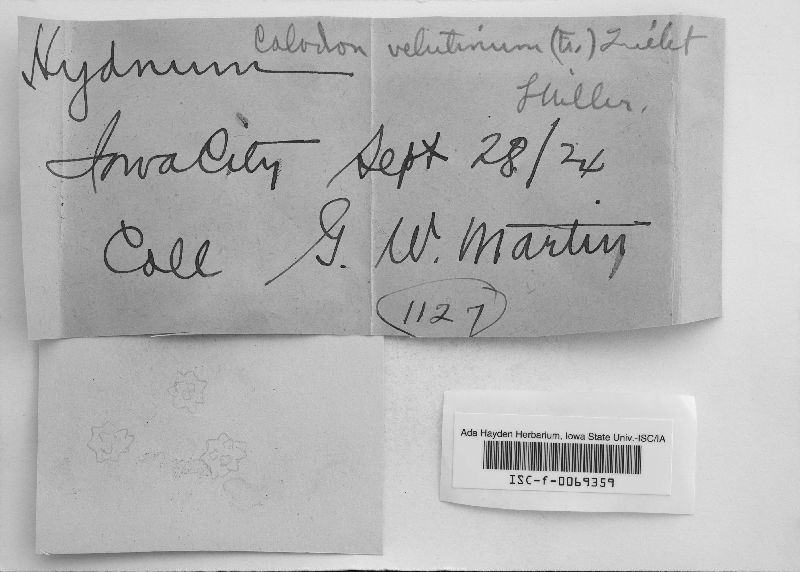 Hydnum Calodon velutinum (Fr.) Quélet
L Miller.
Iowa City Sept 28/24
Coll G. W. Martin
1127
Ada Hayden Herbarium, Iowa State Univ.-ISC/IA
ISC-f-0069359